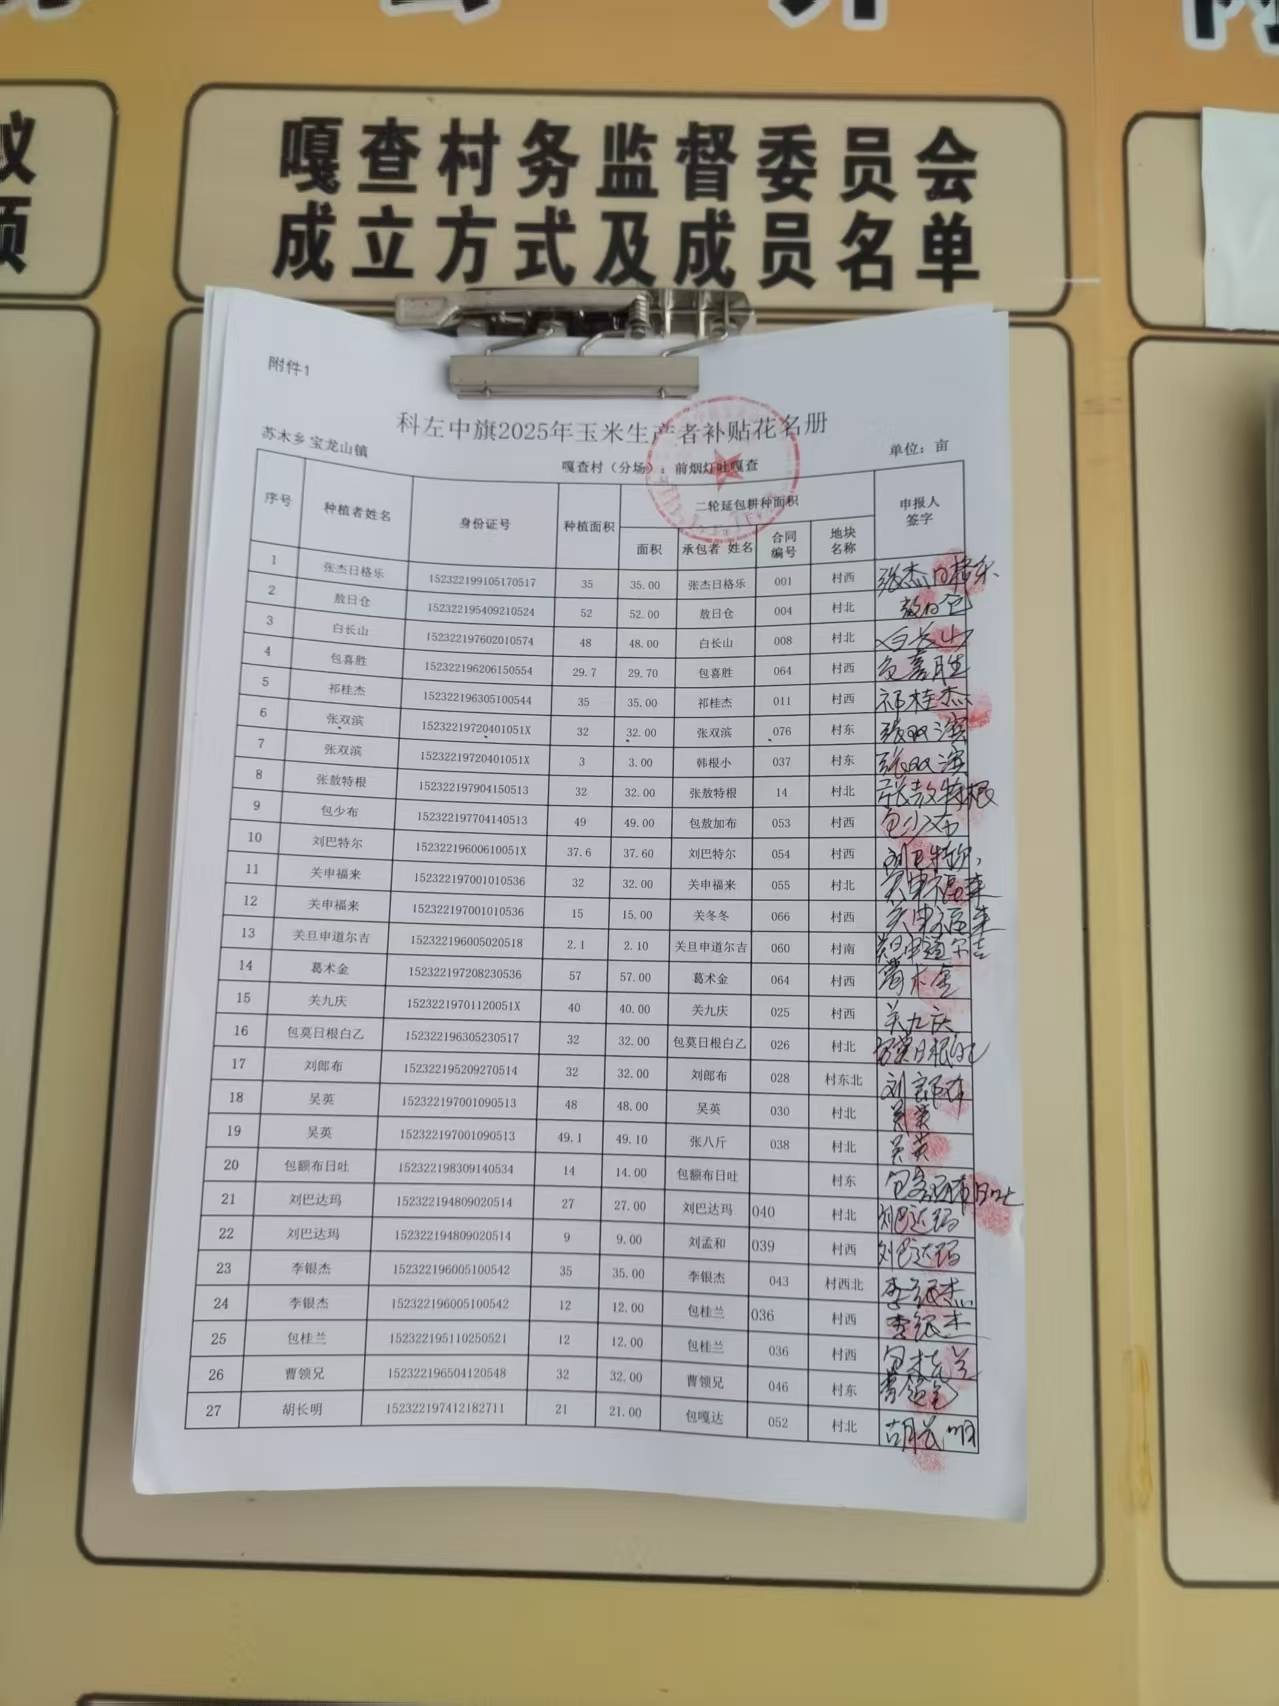 嘎查村务监督委员会
成立方式及成员名单
附件1
科左中旗2025年玉米生产者补贴花名册
苏木乡 宝龙山镇 嘎查村（分场）：前烟灯吐嘎查 单位：亩
序号 种植者姓名 身份证号 种植面积 二轮延包耕种面积 申报人签字
面积 承包者 姓名 合同编号 地块名称
1 张杰日格乐 152322199105170517 35 35.00 张杰日格乐 001 村西 张杰日格乐
2 敖日仓 152322195409210524 52 52.00 敖日仓 004 村北 敖日仓
3 白长山 152322197602010574 48 48.00 白长山 008 村北 白长山
4 包喜胜 152322196206150554 29.7 29.70 包喜胜 064 村西 包喜胜
5 祁桂杰 152322196305100544 35 35.00 祁桂杰 011 村西 祁桂杰
6 张双滨 15232219720401051X 32 32.00 张双滨 076 村东 张双滨
7 张双滨 15232219720401051X 3 3.00 韩根小 037 村东 张双滨
8 张敖特根 152322197904150513 32 32.00 张敖特根 14 村北 张敖特根
9 包少布 152322197704140513 49 49.00 包敖加布 053 村西 包少布
10 刘巴特尔 15232219600610051X 37.6 37.60 刘巴特尔 054 村西 刘巴特尔
11 关申福来 152322197001010536 32 32.00 关申福来 055 村北 关申福来
12 关申福来 152322197001010536 15 15.00 关冬冬 066 村西 关申福来
13 关旦申道尔吉 152322196005020518 2.1 2.10 关旦申道尔吉 060 村南
14 葛术金 152322197208230536 57 57.00 葛术金 064 村西 葛术金
15 关九庆 15232219701120051X 40 40.00 关九庆 025 村西 关九庆
16 包莫日根白乙 152322196305230517 32 32.00 包莫日根白乙 026 村北 包莫日根白乙
17 刘郎布 152322195209270514 32 32.00 刘郎布 028 村东北 刘郎布
18 吴英 152322197001090513 48 48.00 吴英 030 村北 吴英
19 吴英 152322197001090513 49.1 49.10 张八斤 038 村北 吴英
20 包额布日吐 152322198309140534 14 14.00 包额布日吐 村东 包额布日吐
21 刘巴达玛 152322194809020514 27 27.00 刘巴达玛 040 村北 刘巴达玛
22 刘巴达玛 152322194809020514 9 9.00 刘孟和 039 村西 刘巴达玛
23 李银杰 152322196005100542 35 35.00 李银杰 043 村西北 李银杰
24 李银杰 152322196005100542 12 12.00 包桂兰 036 村西 李银杰
25 包桂兰 152322195110250521 12 12.00 包桂兰 036 村西 包桂兰
26 曹领兄 152322196504120548 32 32.00 曹领兄 046 村东 曹领兄
27 胡长明 152322197412182711 21 21.00 包嘎达 052 村北 胡长明